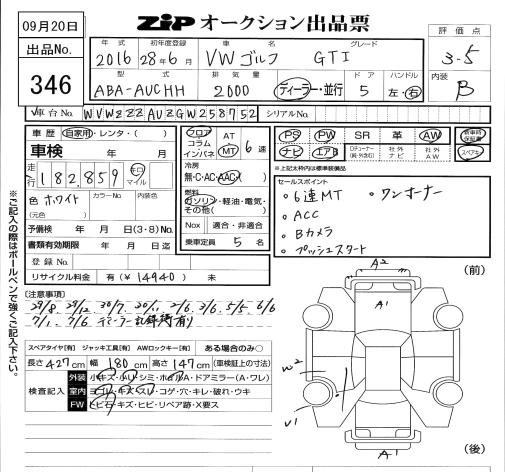 09月20日
ZiP オークション出品票
評価点
3-5
出品No.
346
年式 初年度登録 車名 グレード
2016 28年6月 VW ゴルフ GTI
型式 排気量 ドア ハンドル
ABA-AUCHH 2000 ディーラー・並行 5 左・右
内装
B
車台No. WVWZZZAUZGW258752 シリアルNo.
車歴 自家用・レンタ・( )
車検 年 月
走行 182,859 キロ マイル
色 ホワイト カラーNo. 内装色
(元色 )
予備検 年 月 日(3・8)No.
書類有効期限 年 月 日迄
登録No.
リサイクル料金 有(¥14940) 未
フロア コラム インパネ AT MT 6速
冷房
無・C・AC・AAC
燃料
ガソリン・軽油・電気・その他( )
Nox 適合・非適合
乗車定員 5 名
PS PW SR 革 AW 新車時保証書
ナビ エアB Dチューナー 社外ナビ 社外AW スペアキー
※上記太枠内は標準装備品
セールスポイント
・6速MT ・ワンオーナー
・ACC
・Bカメラ
・プッシュスタート
[注意事項]
29/8. 29/12 30/7. 30/11. 2/6 3/6. 5/5 6/6
7/1. 7/6
スペアタイヤ[有] ジャッキ工具[有] AWロックキー[有] ある場合のみ○
長さ 427cm 幅 180cm 高さ 147cm (車検証上の寸法)
検査記入
外装 小キズ・小U・シミ・ホイルA・ドアミラー(A・ワレ)
室内 ヨゴレ・キズ・スレ・コゲ・穴・キレ・破れ・ウキ
FW ヒビ石・キズ・ヒビ・リペア跡・X要ス
※ご記入の際はボールペンで強くご記入下さい。
A2 (前)
A1
W2
A1
U1
(後)